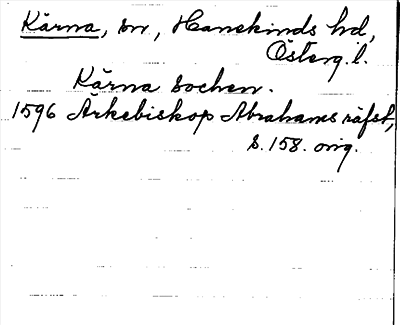 Kärna, sn, Hanekinds hd,
Österg.l.
Kärna sochen.
1596 Ärkebiskop Abrahams räfst,
s. 158. orig.